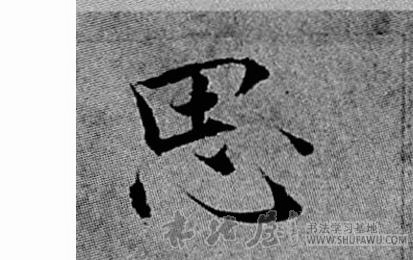 思
书法学习基地
WWW.SHUFAWU.COM